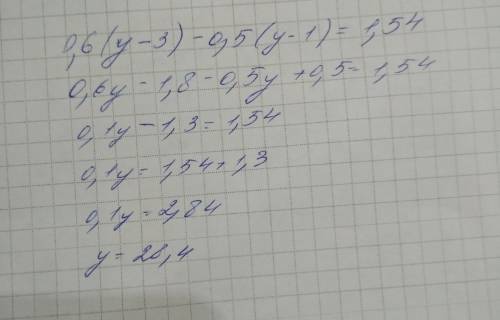 0,6(y-3)-0,5(y-1)=1,54
0,6y-1,8-0,5y+0,5=1,54
0,1y-1,3=1,54
0,1y=1,54+1,3
0,1y=2,84
y=28,4